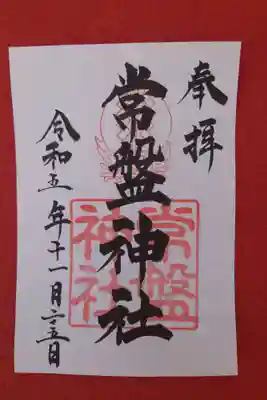 奉拝
常盤神社
常盤
神社
令和五年十一月二十五日